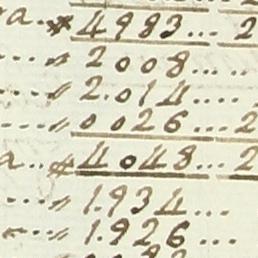 a..# 4983... 2
....〃 2008.....
....〃 2.014....
....〃 0026...2
a..# 4048... 2
...〃 1.934...
...〃 1.926...